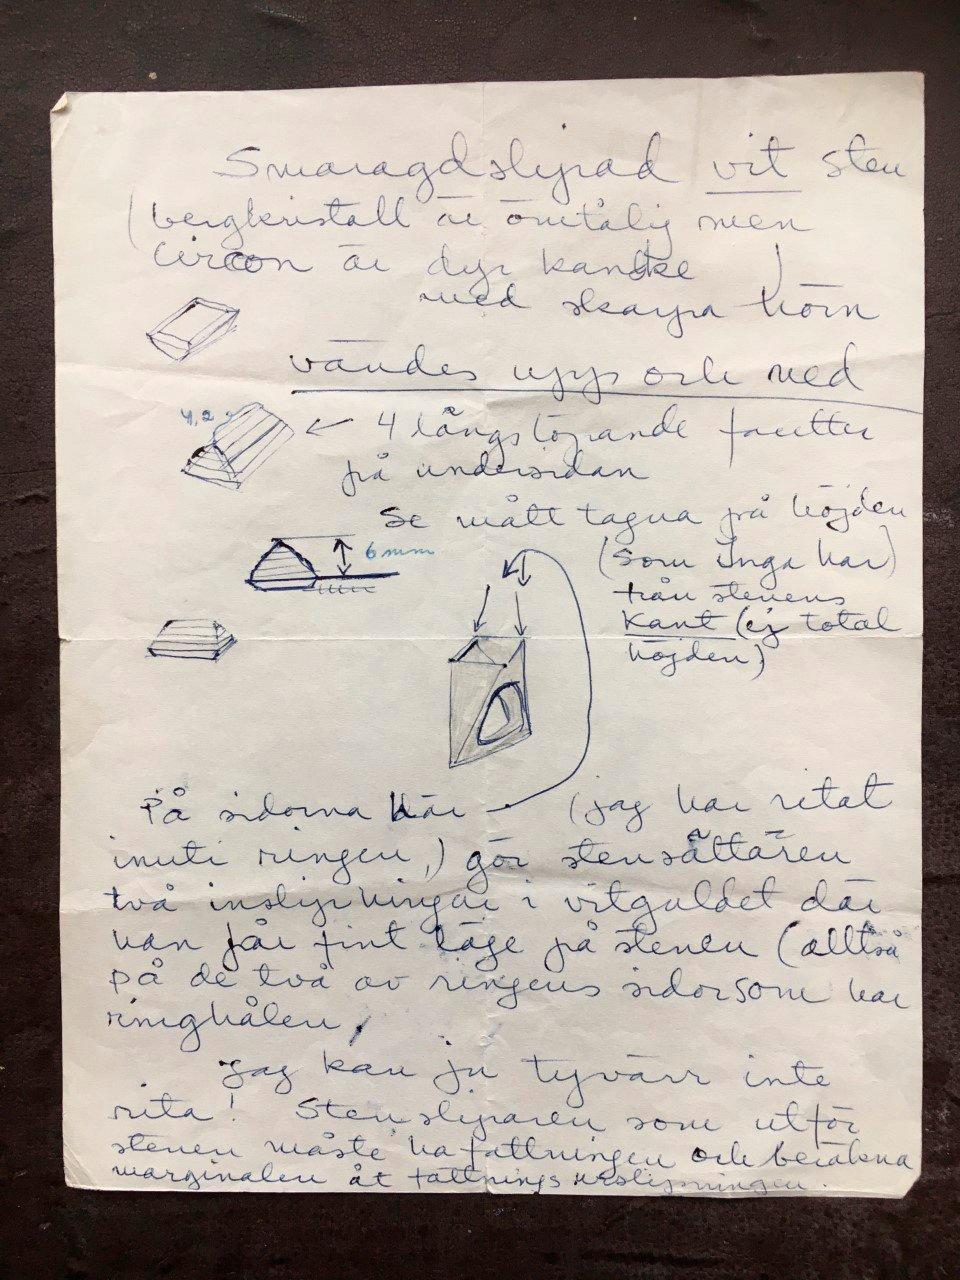 Smaragdslipad vit sten
(bergkristall är ömtålig men
circon är dyr kanske )
med skarpa hörn
vändes upp och ned
4,2
4 långslöpande facetter
på undersidan
Se mått tagna på höjden
6 mm
(som Inga har)
från stenens
kant (ej total
höjden)
På sidorna här (jag har ritat
inuti ringen,) gör stensättaren
två inslipningar i vitguldet där
han får fint läge på stenen (alltså
på de två av ringens sidor som har
ringhålen,
Jag kan ju tyvärr inte
rita! Stensliparen som utför
stenen måste ha fattningen och beräkna
marginalen åt fattnings